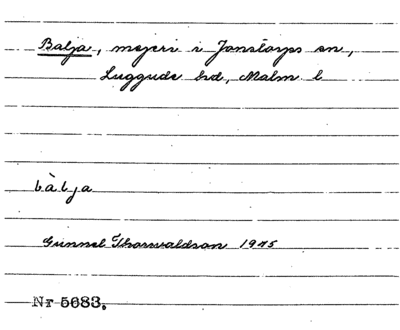 Balja, mejeri i Jonstorps sn,
Luggude hd, Malm. l
bàlja
Gunnel Thorvaldson 1945
Nr 5683.